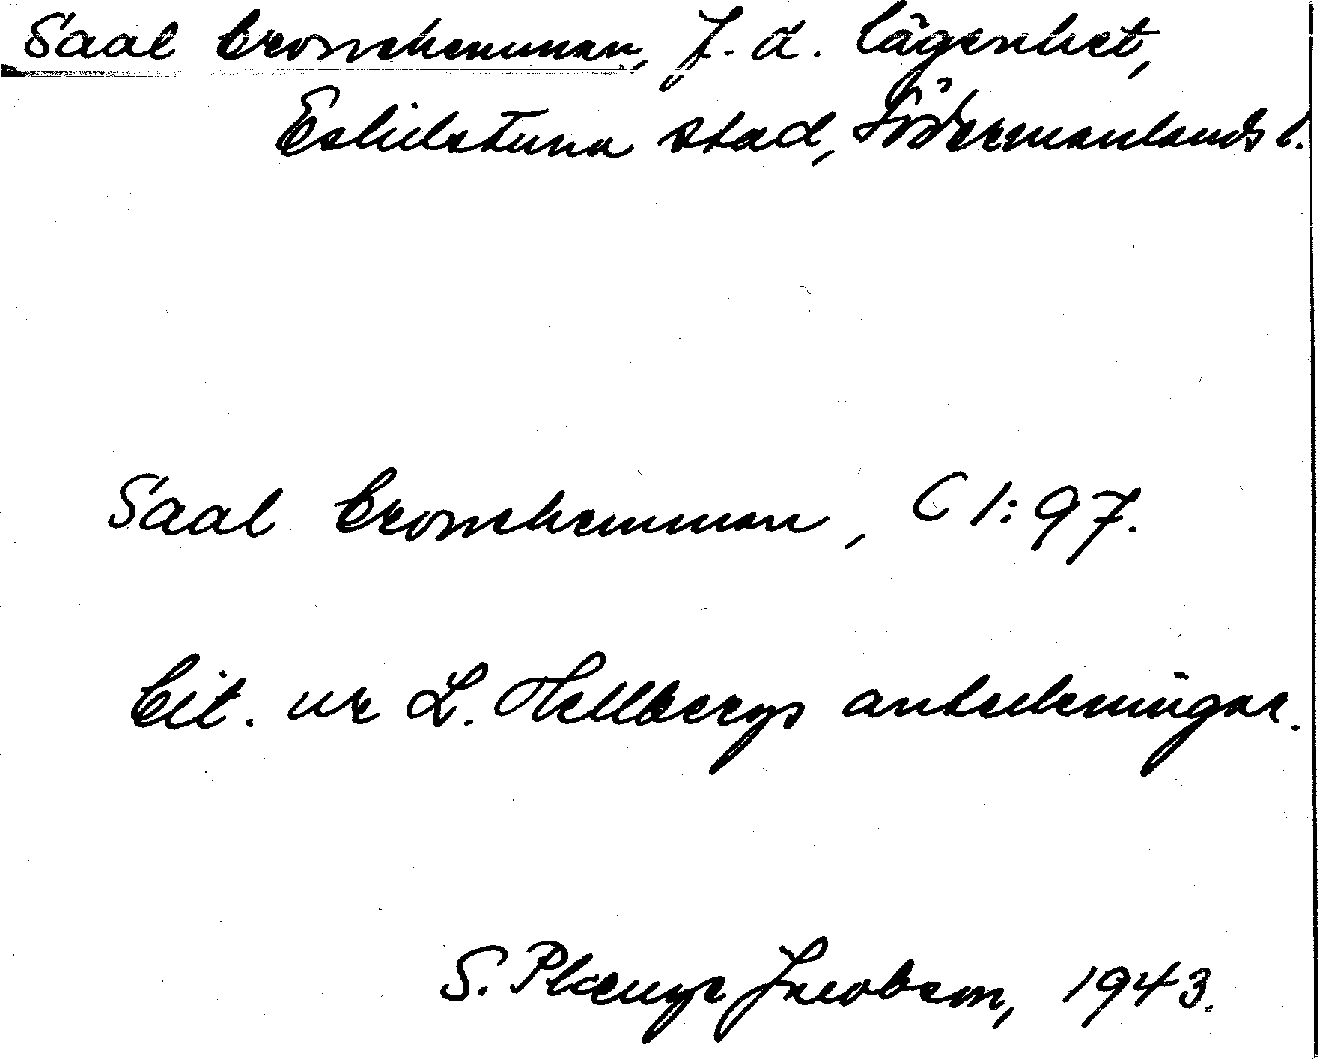 Saal Cronehemman, f.d. lägenhet,
Eskilstuna stad, Södermanlands l.
Saal Cronehemman, C 1:97.
Cit. ur L. Hellbergs anteckningar.
S. Plænge Jacobson, 1943.